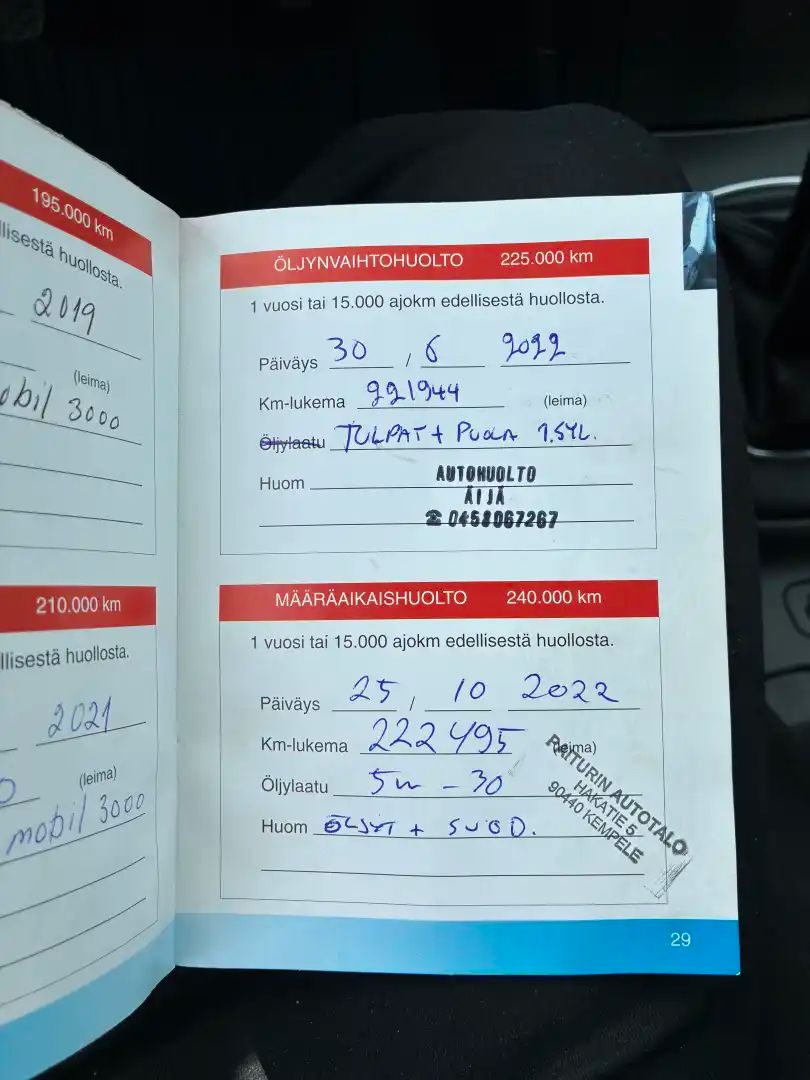 195.000 km
llisestä huollosta.
2019
(leima)
obil 3000
210.000 km
llisestä huollosta.
2021
(leima)
0
mobil 3000
ÖLJYNVAIHTOHUOLTO 225.000 km
1 vuosi tai 15.000 ajokm edellisestä huollosta.
Päiväys 30 / 6 2022
Km-lukema 221944 (leima)
Öljylaatu TULPAT + PUOLA 1.SYL.
Huom
AUTOHUOLTO
ÄIJÄ
☎ 0458067267
MÄÄRÄAIKAISHUOLTO 240.000 km
1 vuosi tai 15.000 ajokm edellisestä huollosta.
Päiväys 25 / 10 2022
Km-lukema 222495 (leima)
Öljylaatu 5w - 30
Huom ÖLJYT + SUOD.
RAITURIN AUTOTALO
HAKATIE 5
90440 KEMPELE
29